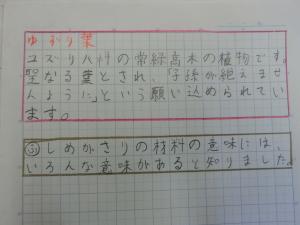 ゆずり葉
ユズリハ科の常緑高木の植物です。
聖なる葉とされ、「子孫が絶えませ
んように」という願い込められてい
ます。
㋛しめかざりの材料の意味には、
いろんな意味があると知りました。